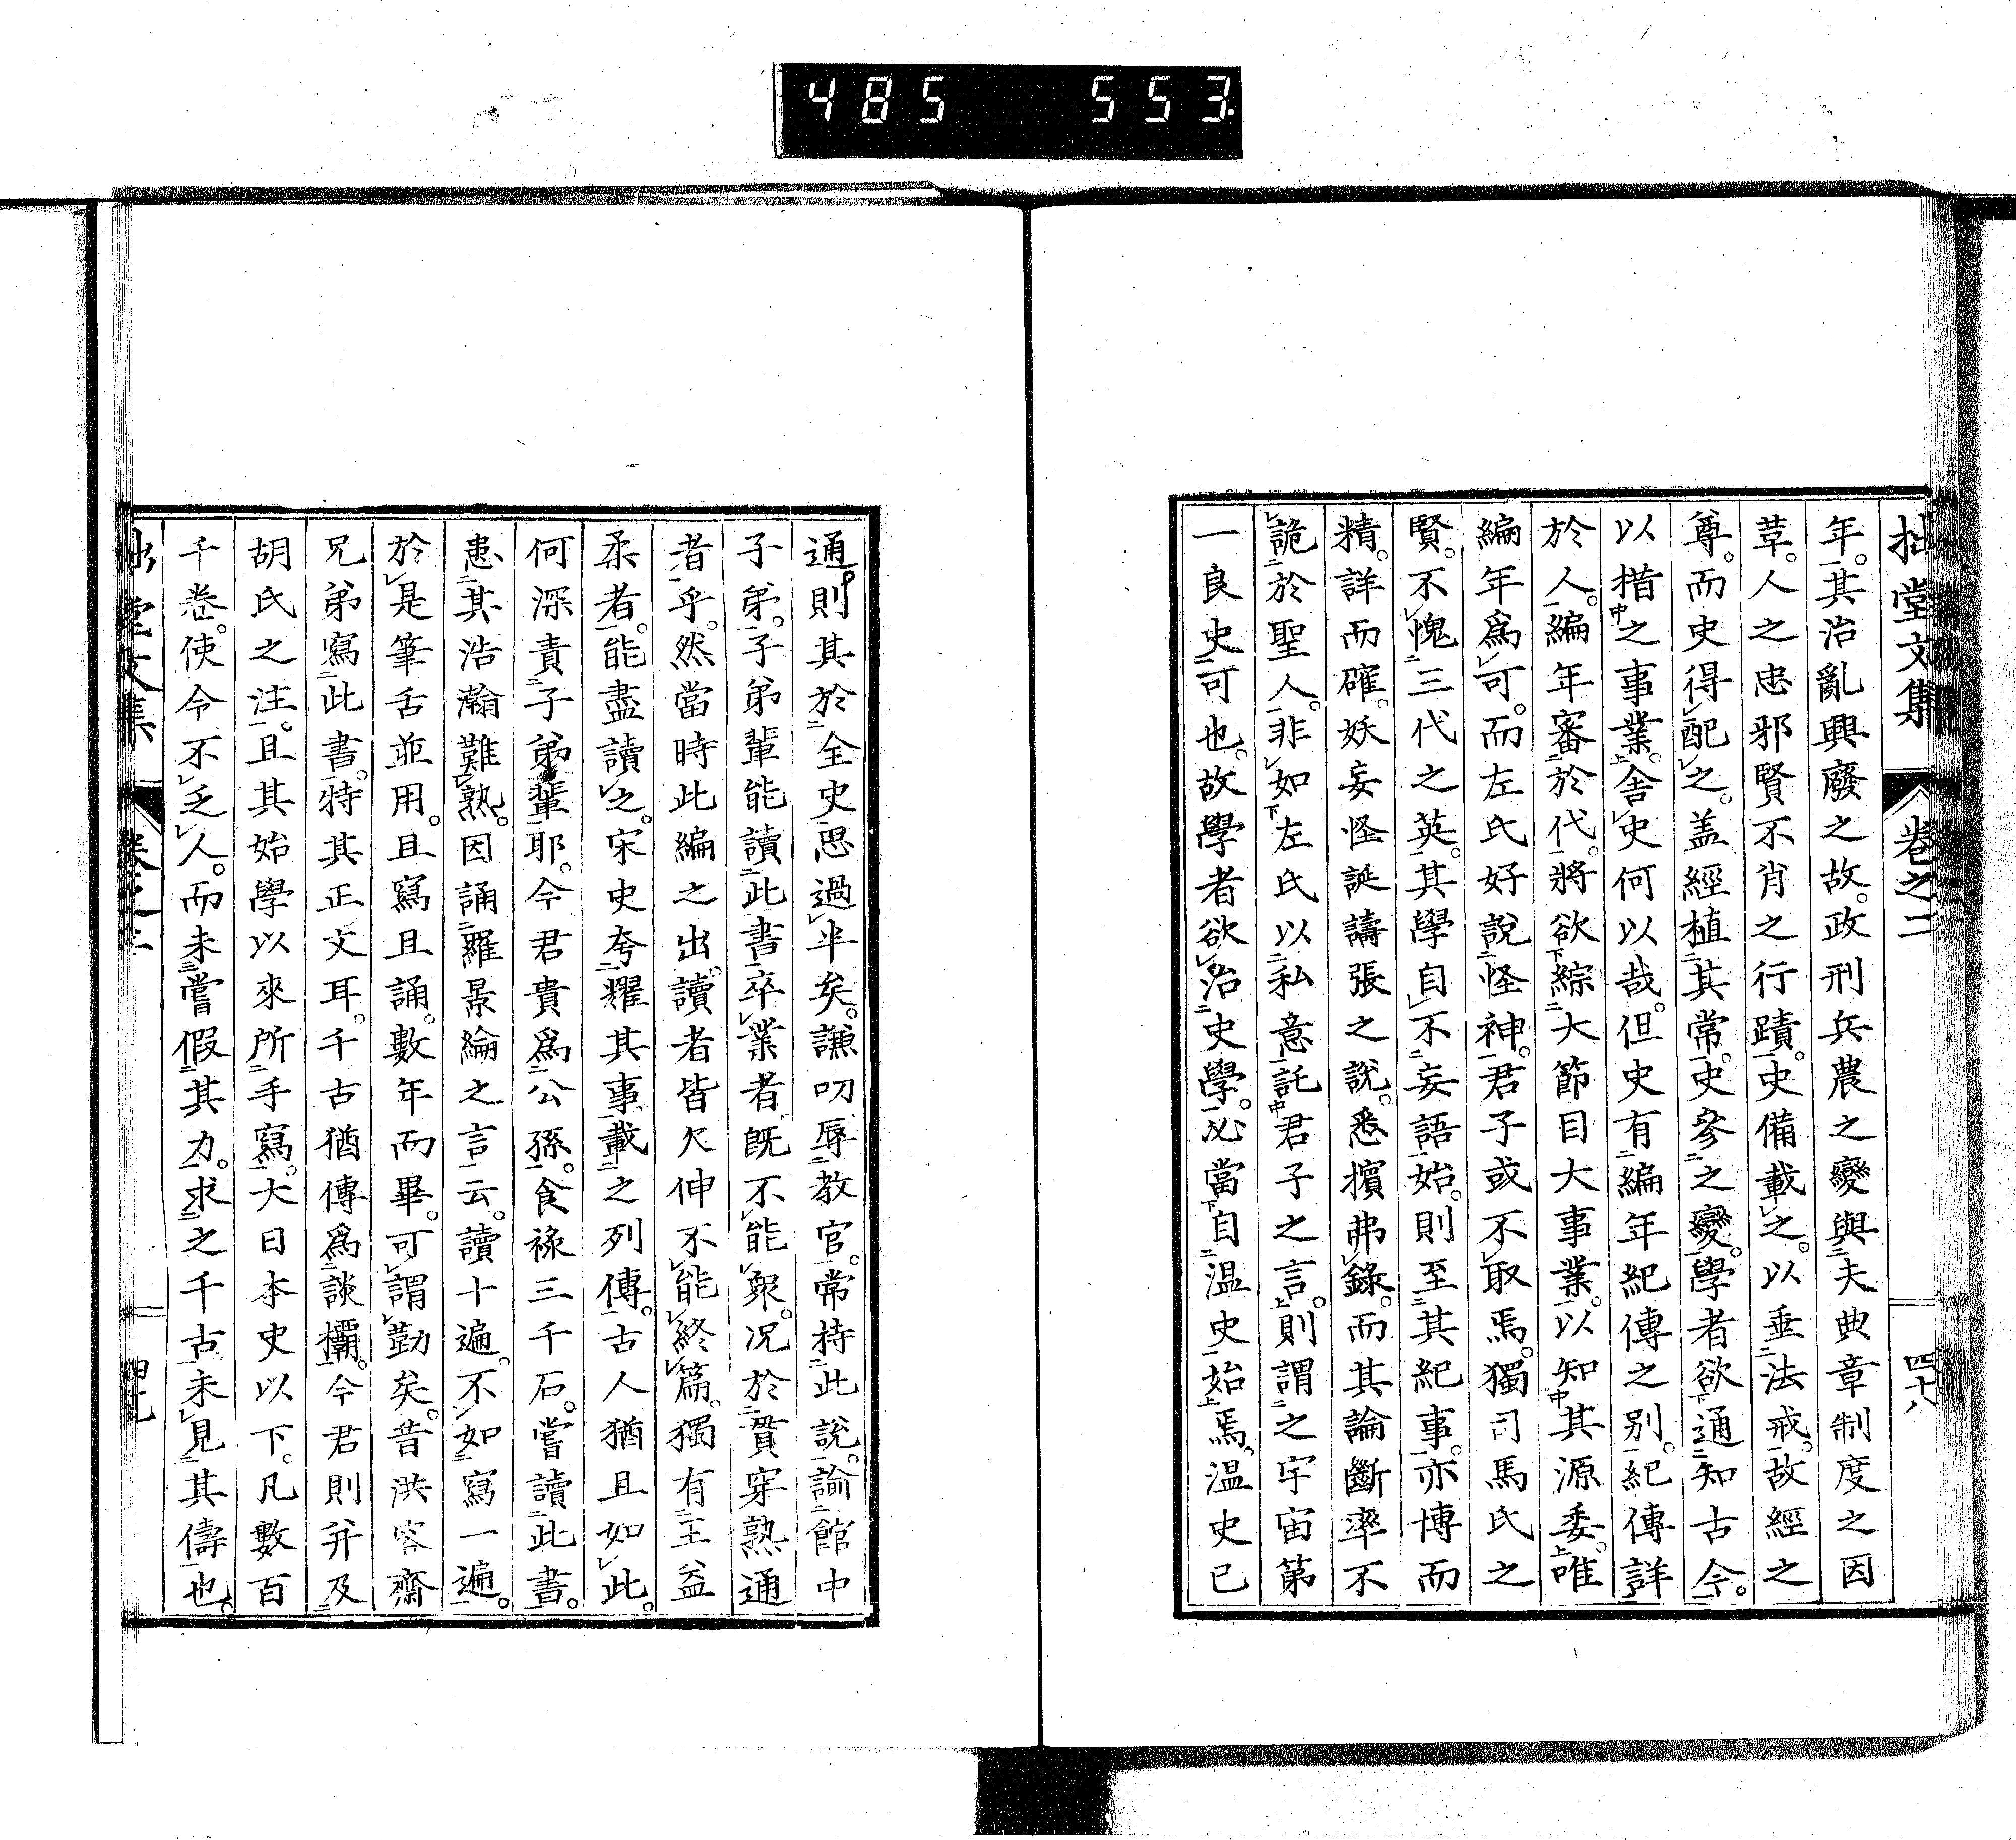 485 553
拙堂文集 卷之二 四十八
年。其治亂興廢之故。政刑兵農之變與夫典章制度之因
革。人之忠邪賢不肖之行蹟。史備載之。以垂法戒。故經之
尊。而史得配之。盖經植其常。史參之變。學者欲通知古今。
以措之事業。舍史何以哉。但史有編年紀傳之別。紀傳詳
於人。編年審於代。將欲綜大節目大事業。以知其源委。唯
編年爲可。而左氏好說怪神。君子或不取焉。獨司馬氏之
賢。不愧三代之英。其學自不妄語始。則至其紀事。亦博而
精。詳而確。妖妄怪誕譸張之說。悉擯弗錄。而其論斷率不
詭於聖人。非如左氏以私意託君子之言。則謂之宇宙第
一良史可也。故學者欲治史學。必當自温史始焉。温史已
通。則其於全史思過半矣。謙叨辱教官。常持此說。諭館中
子弟。子弟輩能讀此書卒業者旣不能衆。况於貫穿熟通
者乎。然當時此編之出。讀者皆欠伸不能終篇。獨有王益
柔者。能盡讀之。宋史夸耀其事。載之列傳。古人猶且如此。
何深責子弟輩耶。今君貴爲公孫。食祿三千石。嘗讀此書。
患其浩瀚難熟。因誦羅景綸之言云。讀十遍。不如寫一遍。
於是筆舌並用。且寫且誦。數年而畢。可謂勤矣。昔洪容齋
兄弟寫此書。特其正文耳。千古猶傳爲談欛。今君則并及
胡氏之注。且其始學以來所手寫。大日本史以下。凡數百
千卷。使令不乏人。而未嘗假其力。求之千古。未見其儔也。
堂文集